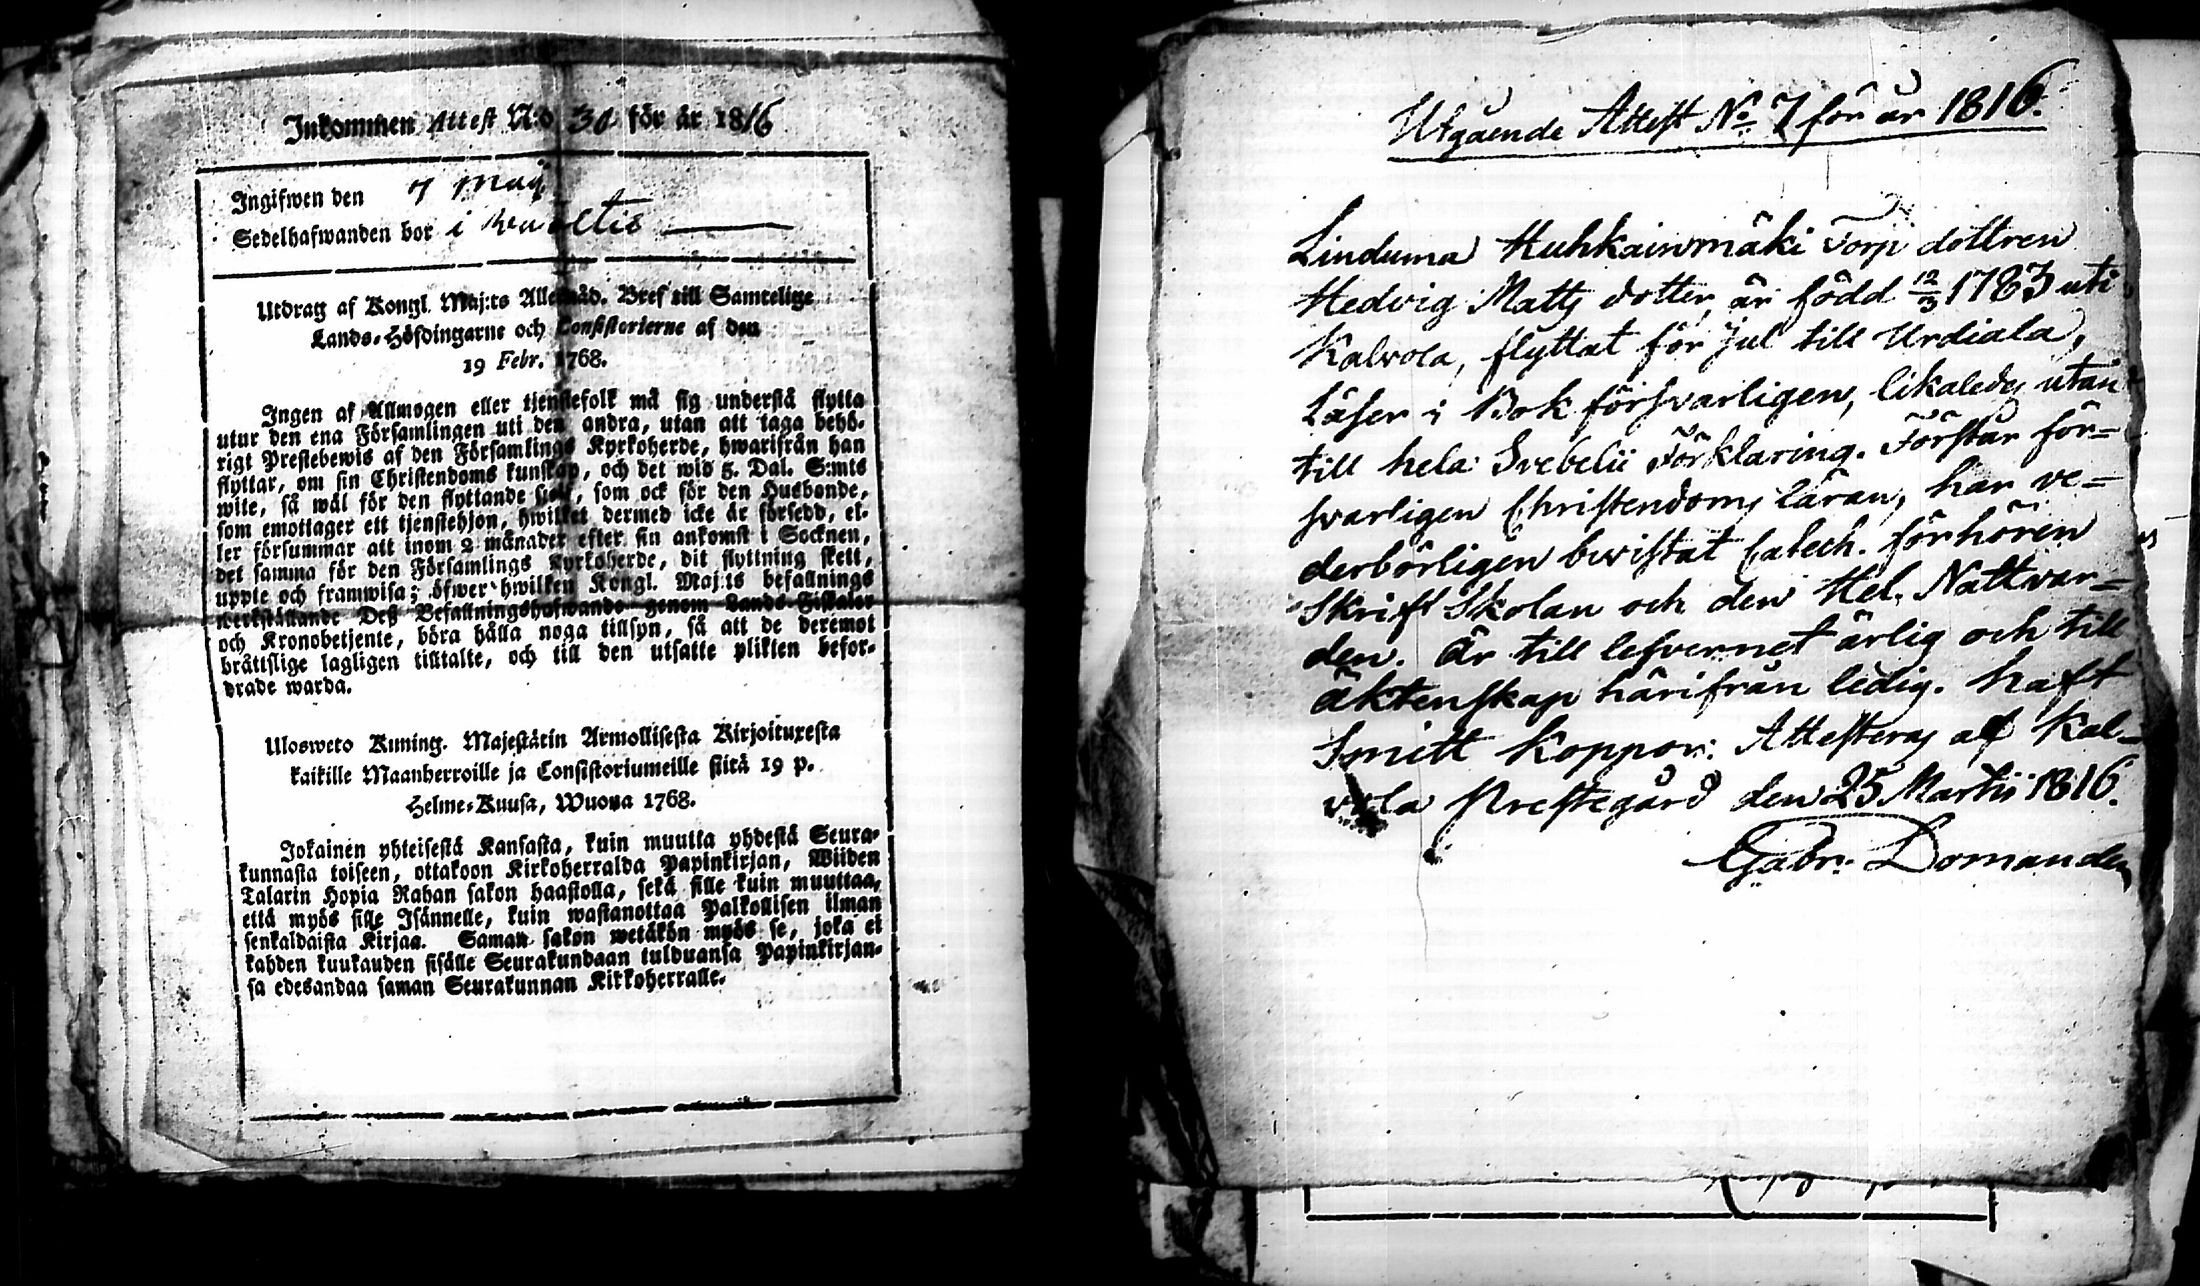 Inkommen Attest N:o 30 för år 1816
Ingifwen den 7 Maij
Sedelhafwanden bor i
Utdrag af Kongl. Maj:ts Allernåd. Bref till Samtelige
Lands-Höfdingarne och Consistorierne af den
19 Febr. 1768.
Ingen af Allmogen eller tjenstefolk må sig understå flytta
utur den ena Församlingen uti den andra, utan att taga behö-
rigt Prestebewis af den Församlings Kyrkoherde, hwarifrån han
flyttar, om sin Christendoms kunskap, och det wid 5. Dal. S:mts
wite, så wäl för den flyttande sjelf, som ock för den Husbonde,
som emottager ett tjenstehjon, hwilket dermed icke är försedd, el-
ler försummar att inom 2 månader efter sin ankomst i Socknen,
det samma för den Församlings Kyrkoherde, dit flyttning skett,
uppte och framwisa; öfwer hwilken Kongl. Maj:ts befallnings
werkställande Deß Befallningshafwande genom Lands-Fiskaler
och Kronobetjente, böra hålla noga tillsyn, så att de deremot
bråttslige lagligen tilltalte, och till den utsatte plikten befor-
drade warda.
Ulosweto Kuning. Majestätin Armollisesta Kirjoituxesta
kaikille Maanherroille ja Consistoriumeille siitä 19 p.
Helme-Kuusa, Wuonna 1768.
Jokainen yhteisestä Kansasta, kuin muutta yhdestä Seura-
kunnasta toiseen, ottakoon Kirkoherralda Papinkirjan, Wiiden
Talarin Hopia Rahan sakon haastolla, sekä sille kuin muuttaa,
että myös sille Isännelle, kuin wastanottaa Palkollisen ilman
senkaldaista Kirjaa. Saman sakon wetäkön myös se, joka ei
kahden kuukauden sisälle Seurakundaan tulduansa Papinkirjan-
sa edesandaa saman Seurakunnan Kirkoherralle.
Utgående Attest No 7 för år 1816.
Linduma Huhkainmäki Torp dottren
Hedvig Matts dotter, är född 12/3 1783 uti
Kalvola, flyttat för Jul till Urdiala,
Läser i Bok försvarligen, likaledes utan
till hela Svebelii Förklaring. Förstår för-
svarligen Christendoms läran, har ve-
derbörligen bevistat Catech. förhören
Skrift Skolan och den Hel. Nattvar-
den. Är till lefvernet ärlig och till
äktenskap härifrån ledig. haft
Smitt Koppor: Attesteras af Kal-
vola Prestegård den 25 Martii 1816.
Gabr. Domander